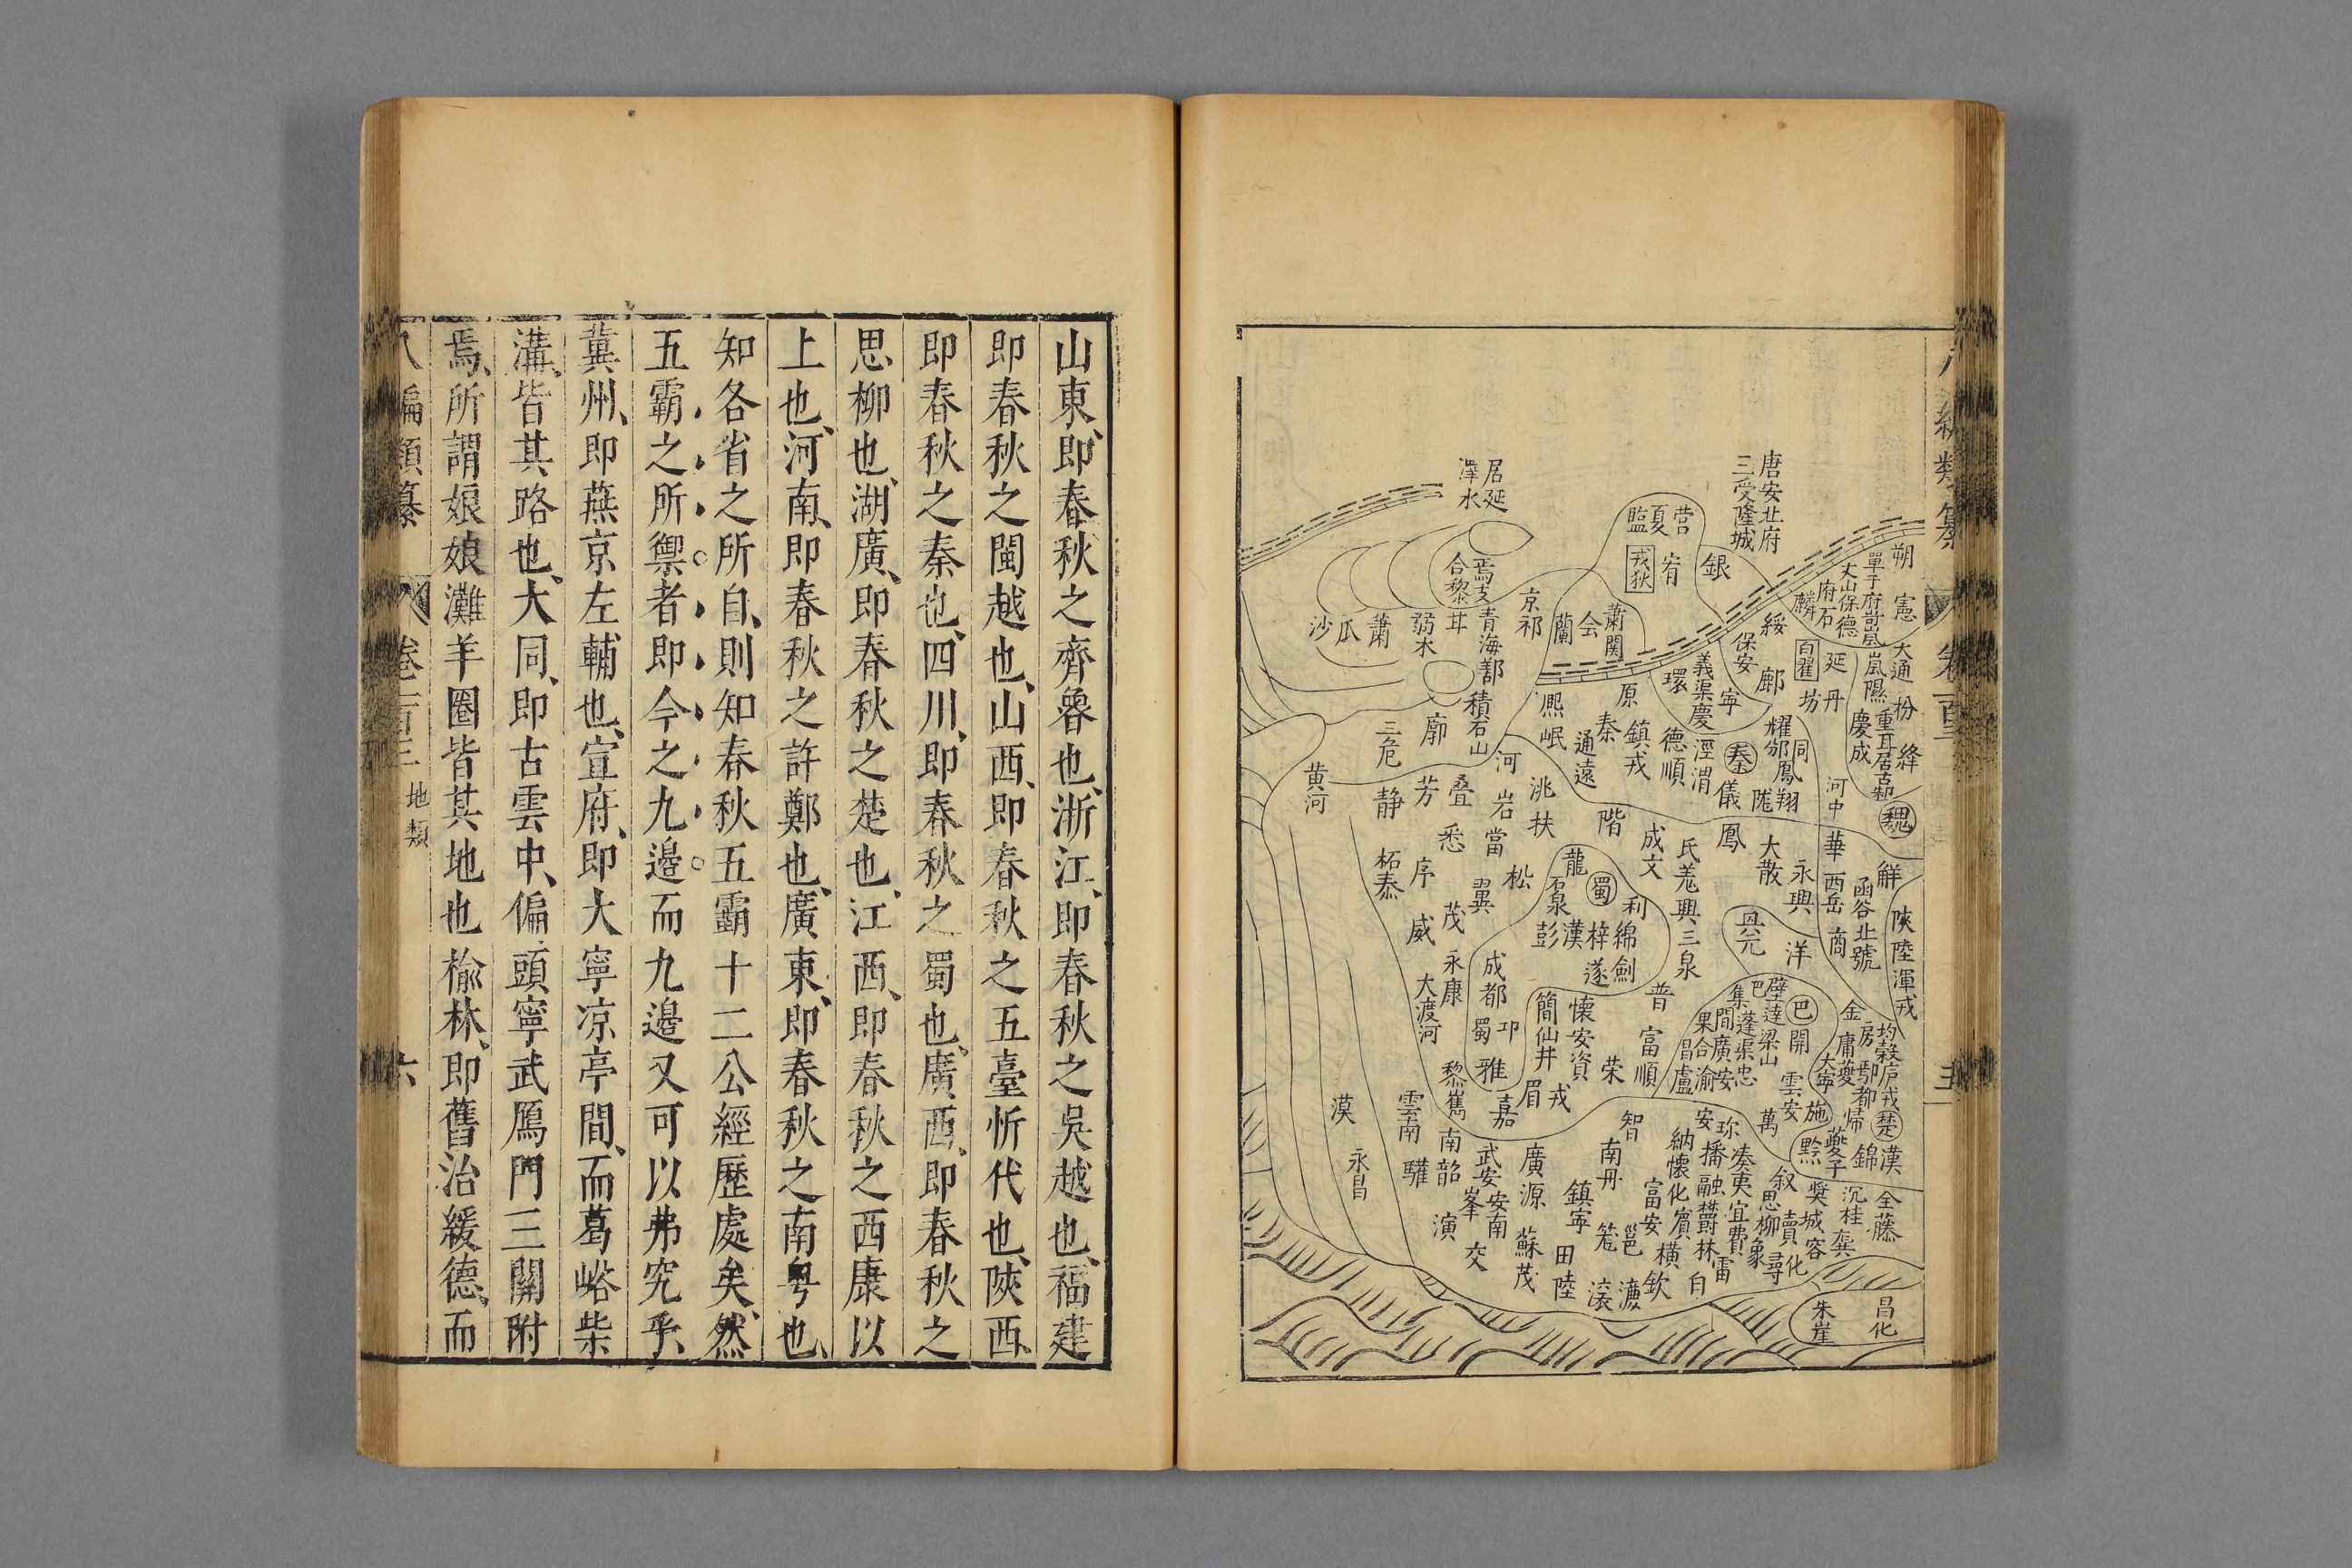 唐安北府
三受隆城
居延
澤水
营
夏
臨
戎狄
宥
銀
朔
單于府岢嵐
丈山保德
府石
麟
憲
焉支
合黎
青海鄯
積石山
京祁
蘭
会
蕭関
沙
瓜
蕭
弱水
綏
保安
白翟
延
丹
坊
鄜
大通
嵐隰
汾
絳
慶成
魏
義渠慶
環
寧
原
秦
鎮戎
德順
涇渭
秦
儀
同
耀邠鳳翔
隴
河中
熈
岷
通遠
三危
廓
黄河
河
静
芳
叠
岩
洮
扶
悉
當
階
成文
氐羌興三泉
鳳
大散
永興
華
西岳
函谷北虢
商
解
陝陸渾戎
柘恭
序
威
翼
茂
松
龍
蜀
利
彭
漢
梓
綿
劍
遂
洋
永康
大渡河
成都
蜀
邛
雅
簡仙井
懷安資
普
富順
荣
巴
開
梁山
雲安
金
房
大寧
施
歸
楚
萬
黔
夔子
錦
漢
黎
嘉
眉
戎
漠
永昌
雲南
南韶
驩
演
武安
安南
峯
交
廣源
蘇茂
智
南丹
鎮寧
田
陸
邕
富安
横
欽
納懷化賓
播融
林
宜
思柳象
叙
沉桂
全藤
城容
龔
化
朱崖
昌化
山東、即春秋之齊魯也、浙江、即春秋之吳越也、福建
即春秋之閩越也、山西、即春秋之五臺忻代也、陝西、
即春秋之秦也、四川、即春秋之蜀也、廣西、即春秋之
思柳也、湖廣、即春秋之楚也、江西、即春秋之西康以
上也、河南、即春秋之許鄭也、廣東、即春秋之南粤也、
知各省之所自、則知春秋五霸十二公經歷處矣、然
五霸之所禦者即今之九邊而九邊又可以弗究乎、
冀州、即燕京左輔也、宣府、即大寧凉亭間、而葛峪柴
溝、皆其路也、大同、即古雲中、偏頭寧武鴈門三關附
焉、所謂娘娘灘羊圈皆其地也榆林、即舊治綏德、而
八編類纂
卷一百三
地類
六